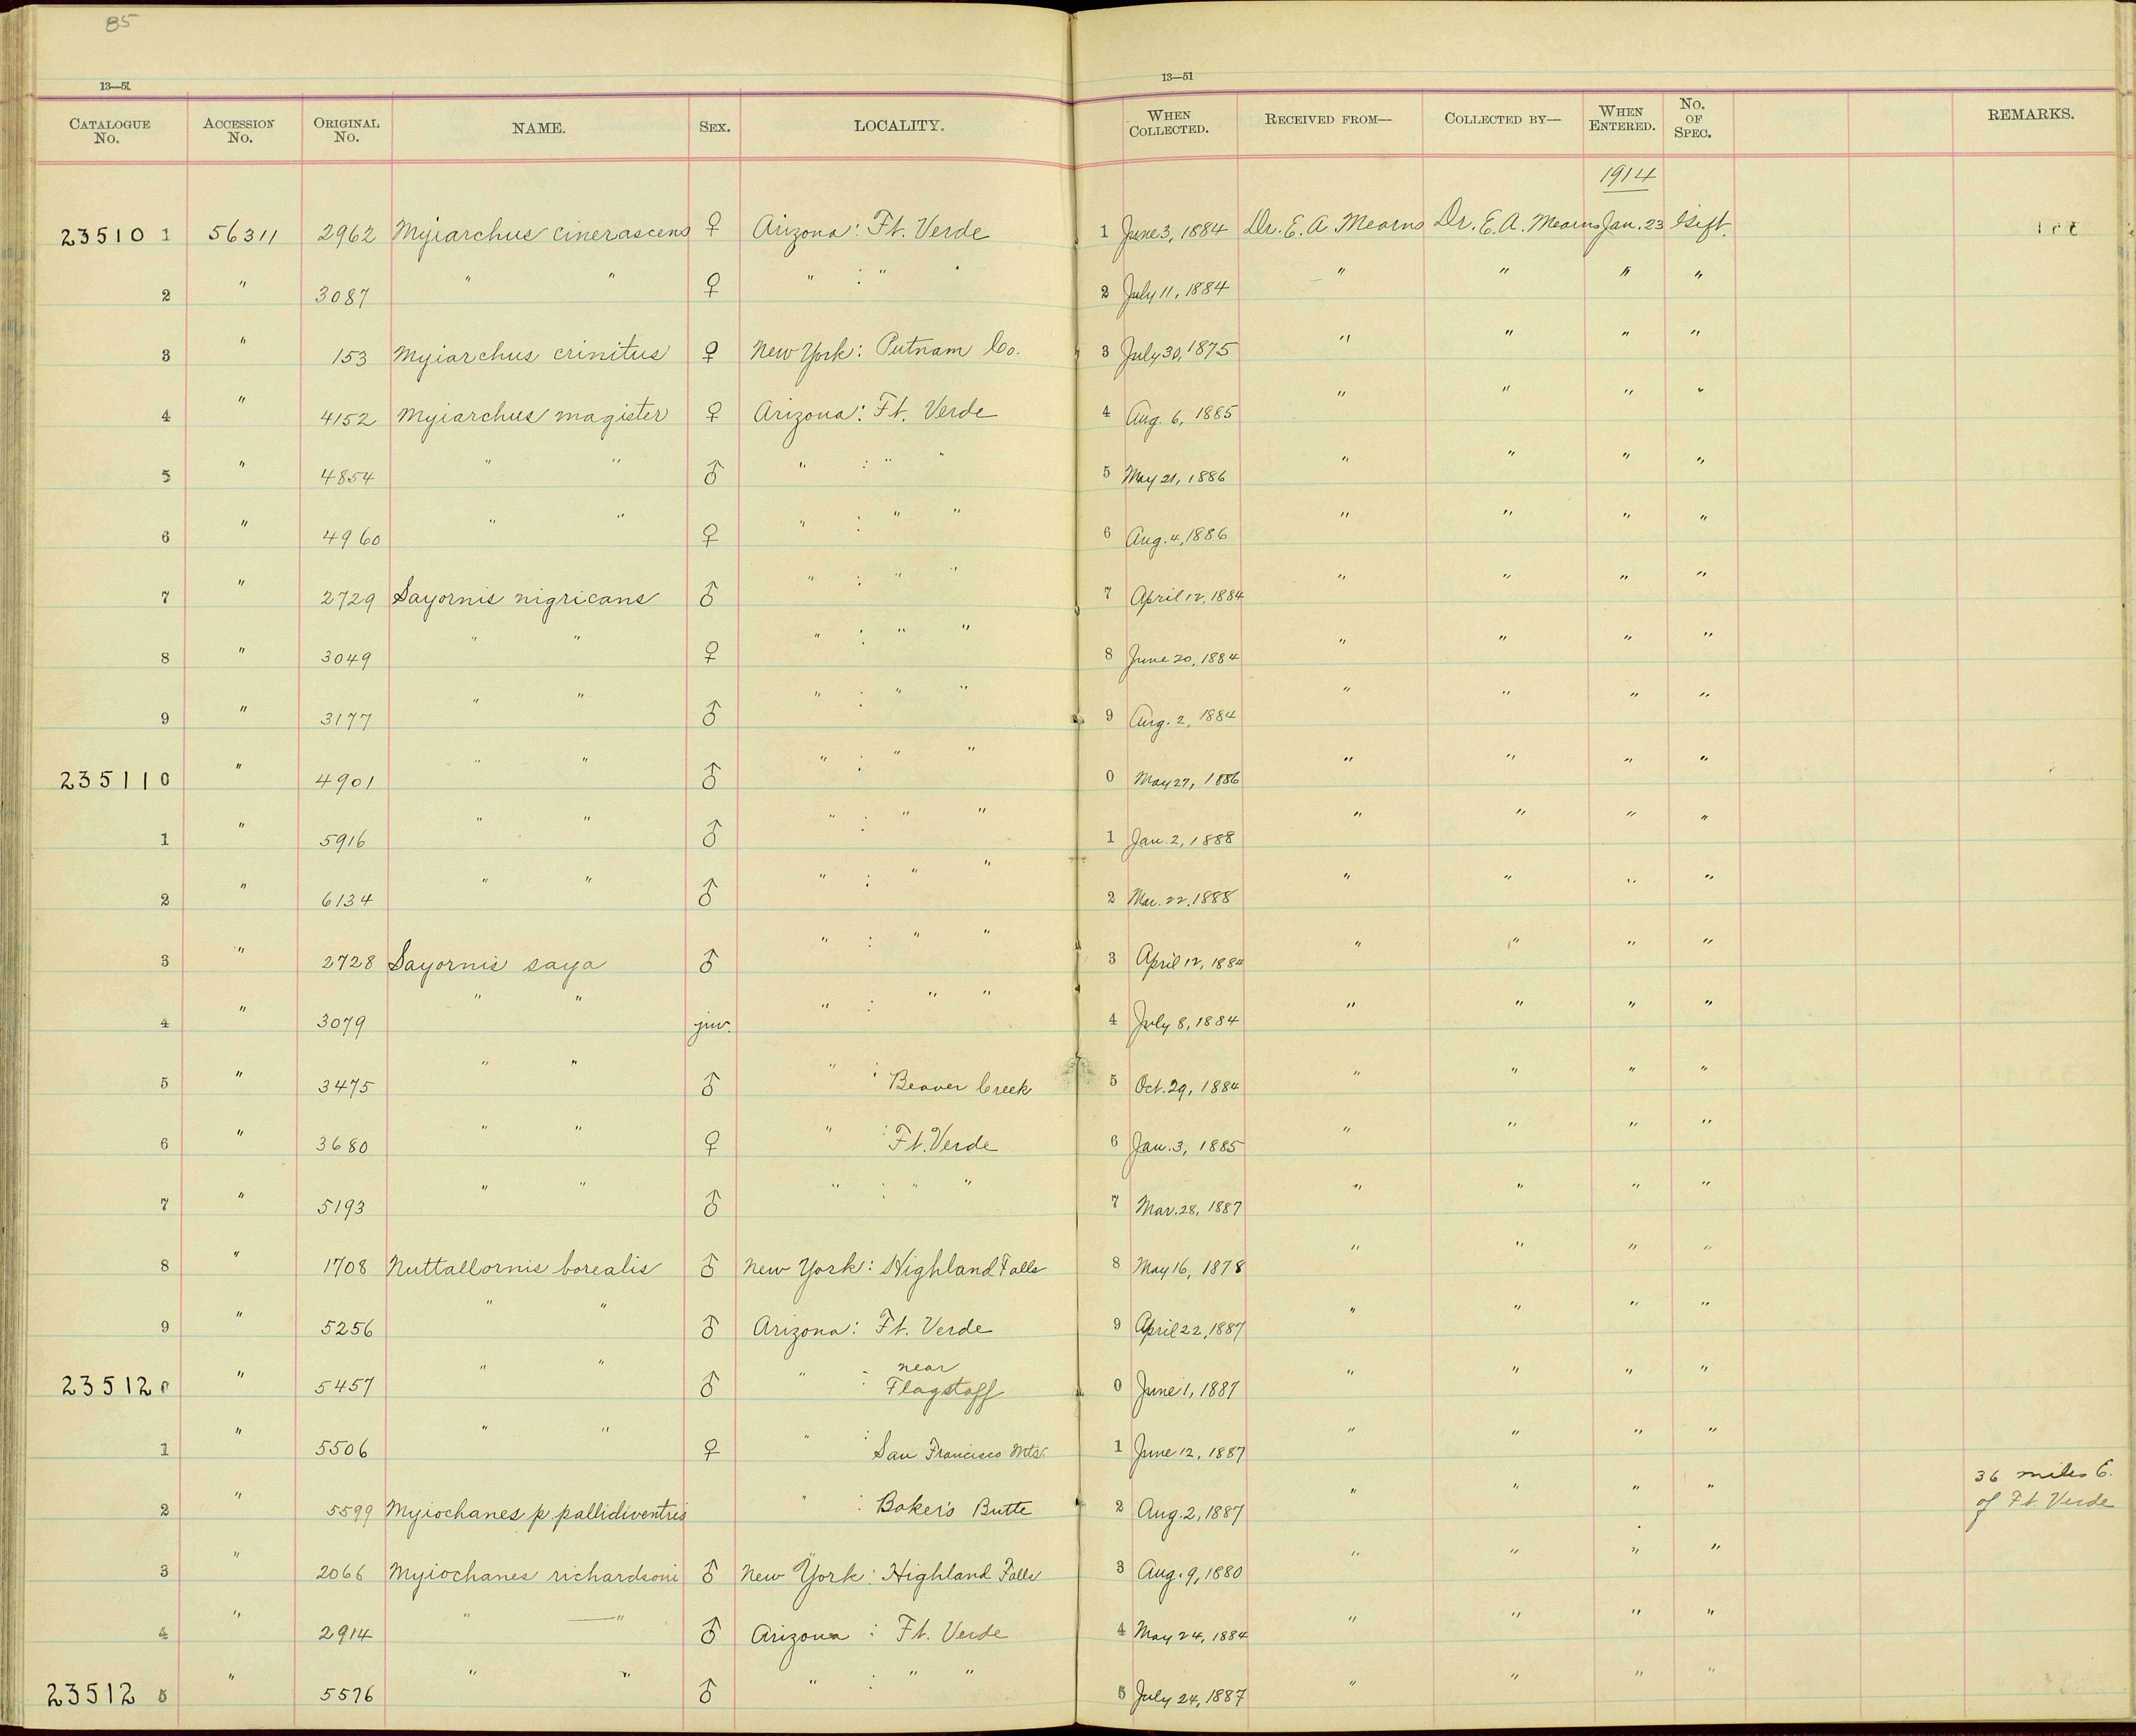 85
13—51
13—51
CATALOGUE No. ACCESSION No. ORIGINAL No. NAME. SEX. LOCALITY. WHEN COLLECTED. RECEIVED FROM— COLLECTED BY— WHEN ENTERED. No. OF SPEC. REMARKS.
1914
235101 56311 2962 Myiarchus cinerascens ♀ Arizona: Ft. Verde 1 June 3, 1884 Dr. E. A Mearns Dr. E. A. Mearns Jan. 23 Gift.
2 " 3087 " " ♀ " : " " 2 July 11, 1884 " " " "
3 " 153 Myiarchus crinitus ♀ New York: Putnam Co. 3 July 30, 1875 " " " "
4 " 4152 Myiarchus magister ♀ Arizona: Ft. Verde 4 Aug. 6, 1885 " " " "
5 " 4854 " " ♂ " : " " 5 May 21, 1886 " " " "
6 " 4960 " " ♀ " : " " 6 Aug. 4, 1886 " " " "
7 " 2729 Sayornis nigricans ♂ " : " " 7 April 12, 1884 " " " "
8 " 3049 " " ♀ " : " " 8 June 20, 1884 " " " "
9 " 3177 " " ♂ " : " " 9 Aug. 2, 1884 " " " "
235110 " 4901 " " ♂ " : " " 0 May 27, 1886 " " " "
1 " 5916 " " ♂ " : " " 1 Jan. 2, 1888 " " " "
2 " 6134 " " ♂ " : " " 2 Mar. 22, 1888 " " " "
3 " 2728 Sayornis saya ♂ " : " " 3 April 12, 1884 " " " "
4 " 3079 " " juv. " : " " 4 July 8, 1884 " " " "
5 " 3475 " " ♂ " : Beaver Creek 5 Oct. 29, 1884 " " " "
6 " 3680 " " ♀ " : Ft. Verde 6 Jan. 3, 1885 " " " "
7 " 5193 " " ♂ " : " " 7 Mar. 28, 1887 " " " "
8 " 1708 Nuttallornis borealis ♂ New York: Highland Falls 8 May 16, 1878 " " " "
9 " 5256 " " ♂ Arizona: Ft. Verde 9 April 22, 1887 " " " "
235120 " 5457 " " ♂ " : near Flagstaff 0 June 1, 1887 " " " "
1 " 5506 " " ♀ " : San Francisco Mts. 1 June 12, 1887 " " " "
2 " 5599 Myiochanes p. pallidiventris " : Baker's Butte 2 Aug. 2, 1887 " " " " 36 miles E. of Ft. Verde
3 " 2066 Myiochanes richardsoni ♂ New York: Highland Falls 3 Aug. 9, 1880 " " " "
4 " 2914 " " ♂ Arizona : Ft. Verde 4 May 24, 1884 " " " "
235125 " 5576 " " ♂ " : " " 5 July 24, 1887 " " " "